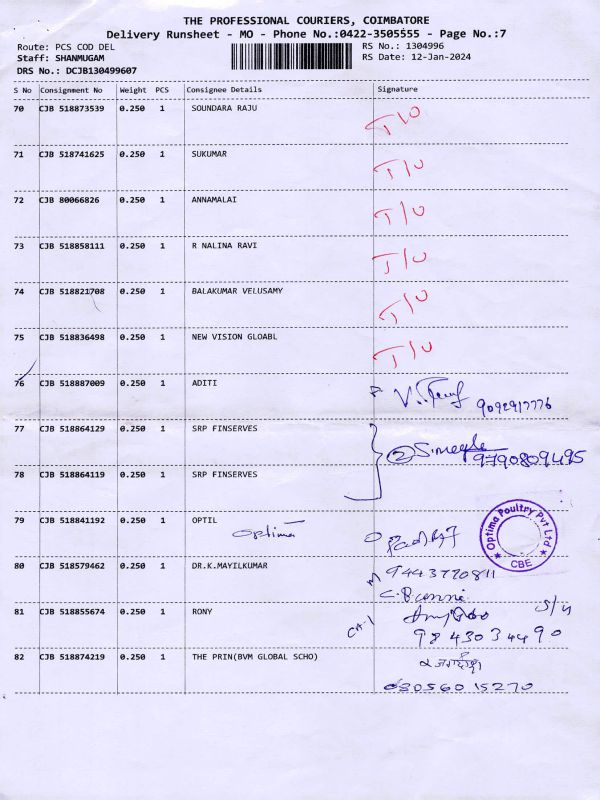 THE PROFESSIONAL COURIERS, COIMBATORE
Delivery Runsheet - MO - Phone No.:0422-3505555 - Page No.:7
Route: PCS COD DEL RS No.: 1304996
Staff: SHANMUGAM RS Date: 12-Jan-2024
DRS No.: DCJB130499607
S No Consignment No Weight PCS Consignee Details Signature
70 CJB 518873539 0.250 1 SOUNDARA RAJU T/O
71 CJB 518741625 0.250 1 SUKUMAR T/O
72 CJB 80066826 0.250 1 ANNAMALAI T/O
73 CJB 518858111 0.250 1 R NALINA RAVI T/O
74 CJB 518821708 0.250 1 BALAKUMAR VELUSAMY T/O
75 CJB 518836498 0.250 1 NEW VISION GLOABL T/O
76 CJB 518887009 0.250 1 ADITI
9092917776
77 CJB 518864129 0.250 1 SRP FINSERVES
2 9790809495
78 CJB 518864119 0.250 1 SRP FINSERVES
79 CJB 518841192 0.250 1 OPTIL
optima
Optima Poultry Pvt Ltd
CBE
80 CJB 518579462 0.250 1 DR.K.MAYILKUMAR
9443770811
81 CJB 518855674 0.250 1 RONY
9843034490
82 CJB 518874219 0.250 1 THE PRIN(BVM GLOBAL SCHO)